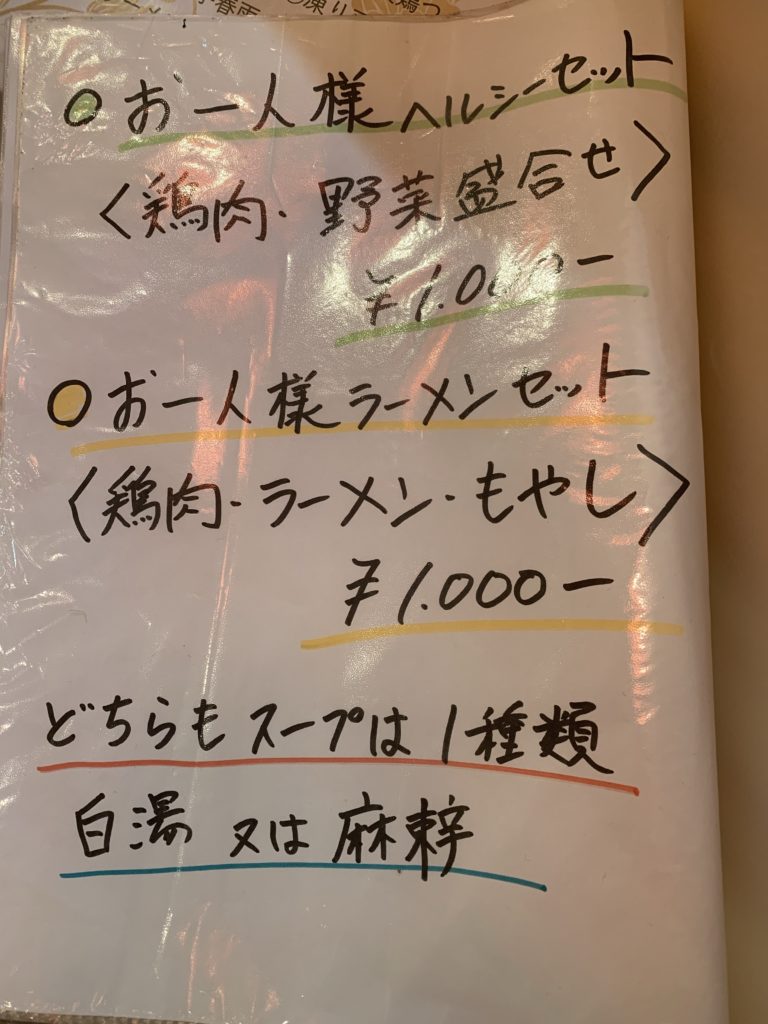 ○お一人様ヘルシーセット
〈鶏肉・野菜盛合せ〉
¥1.000ー
○お一人様ラーメンセット
〈鶏肉・ラーメン・もやし〉
¥1.000ー
どちらもスープは1種類
白湯又は麻辣